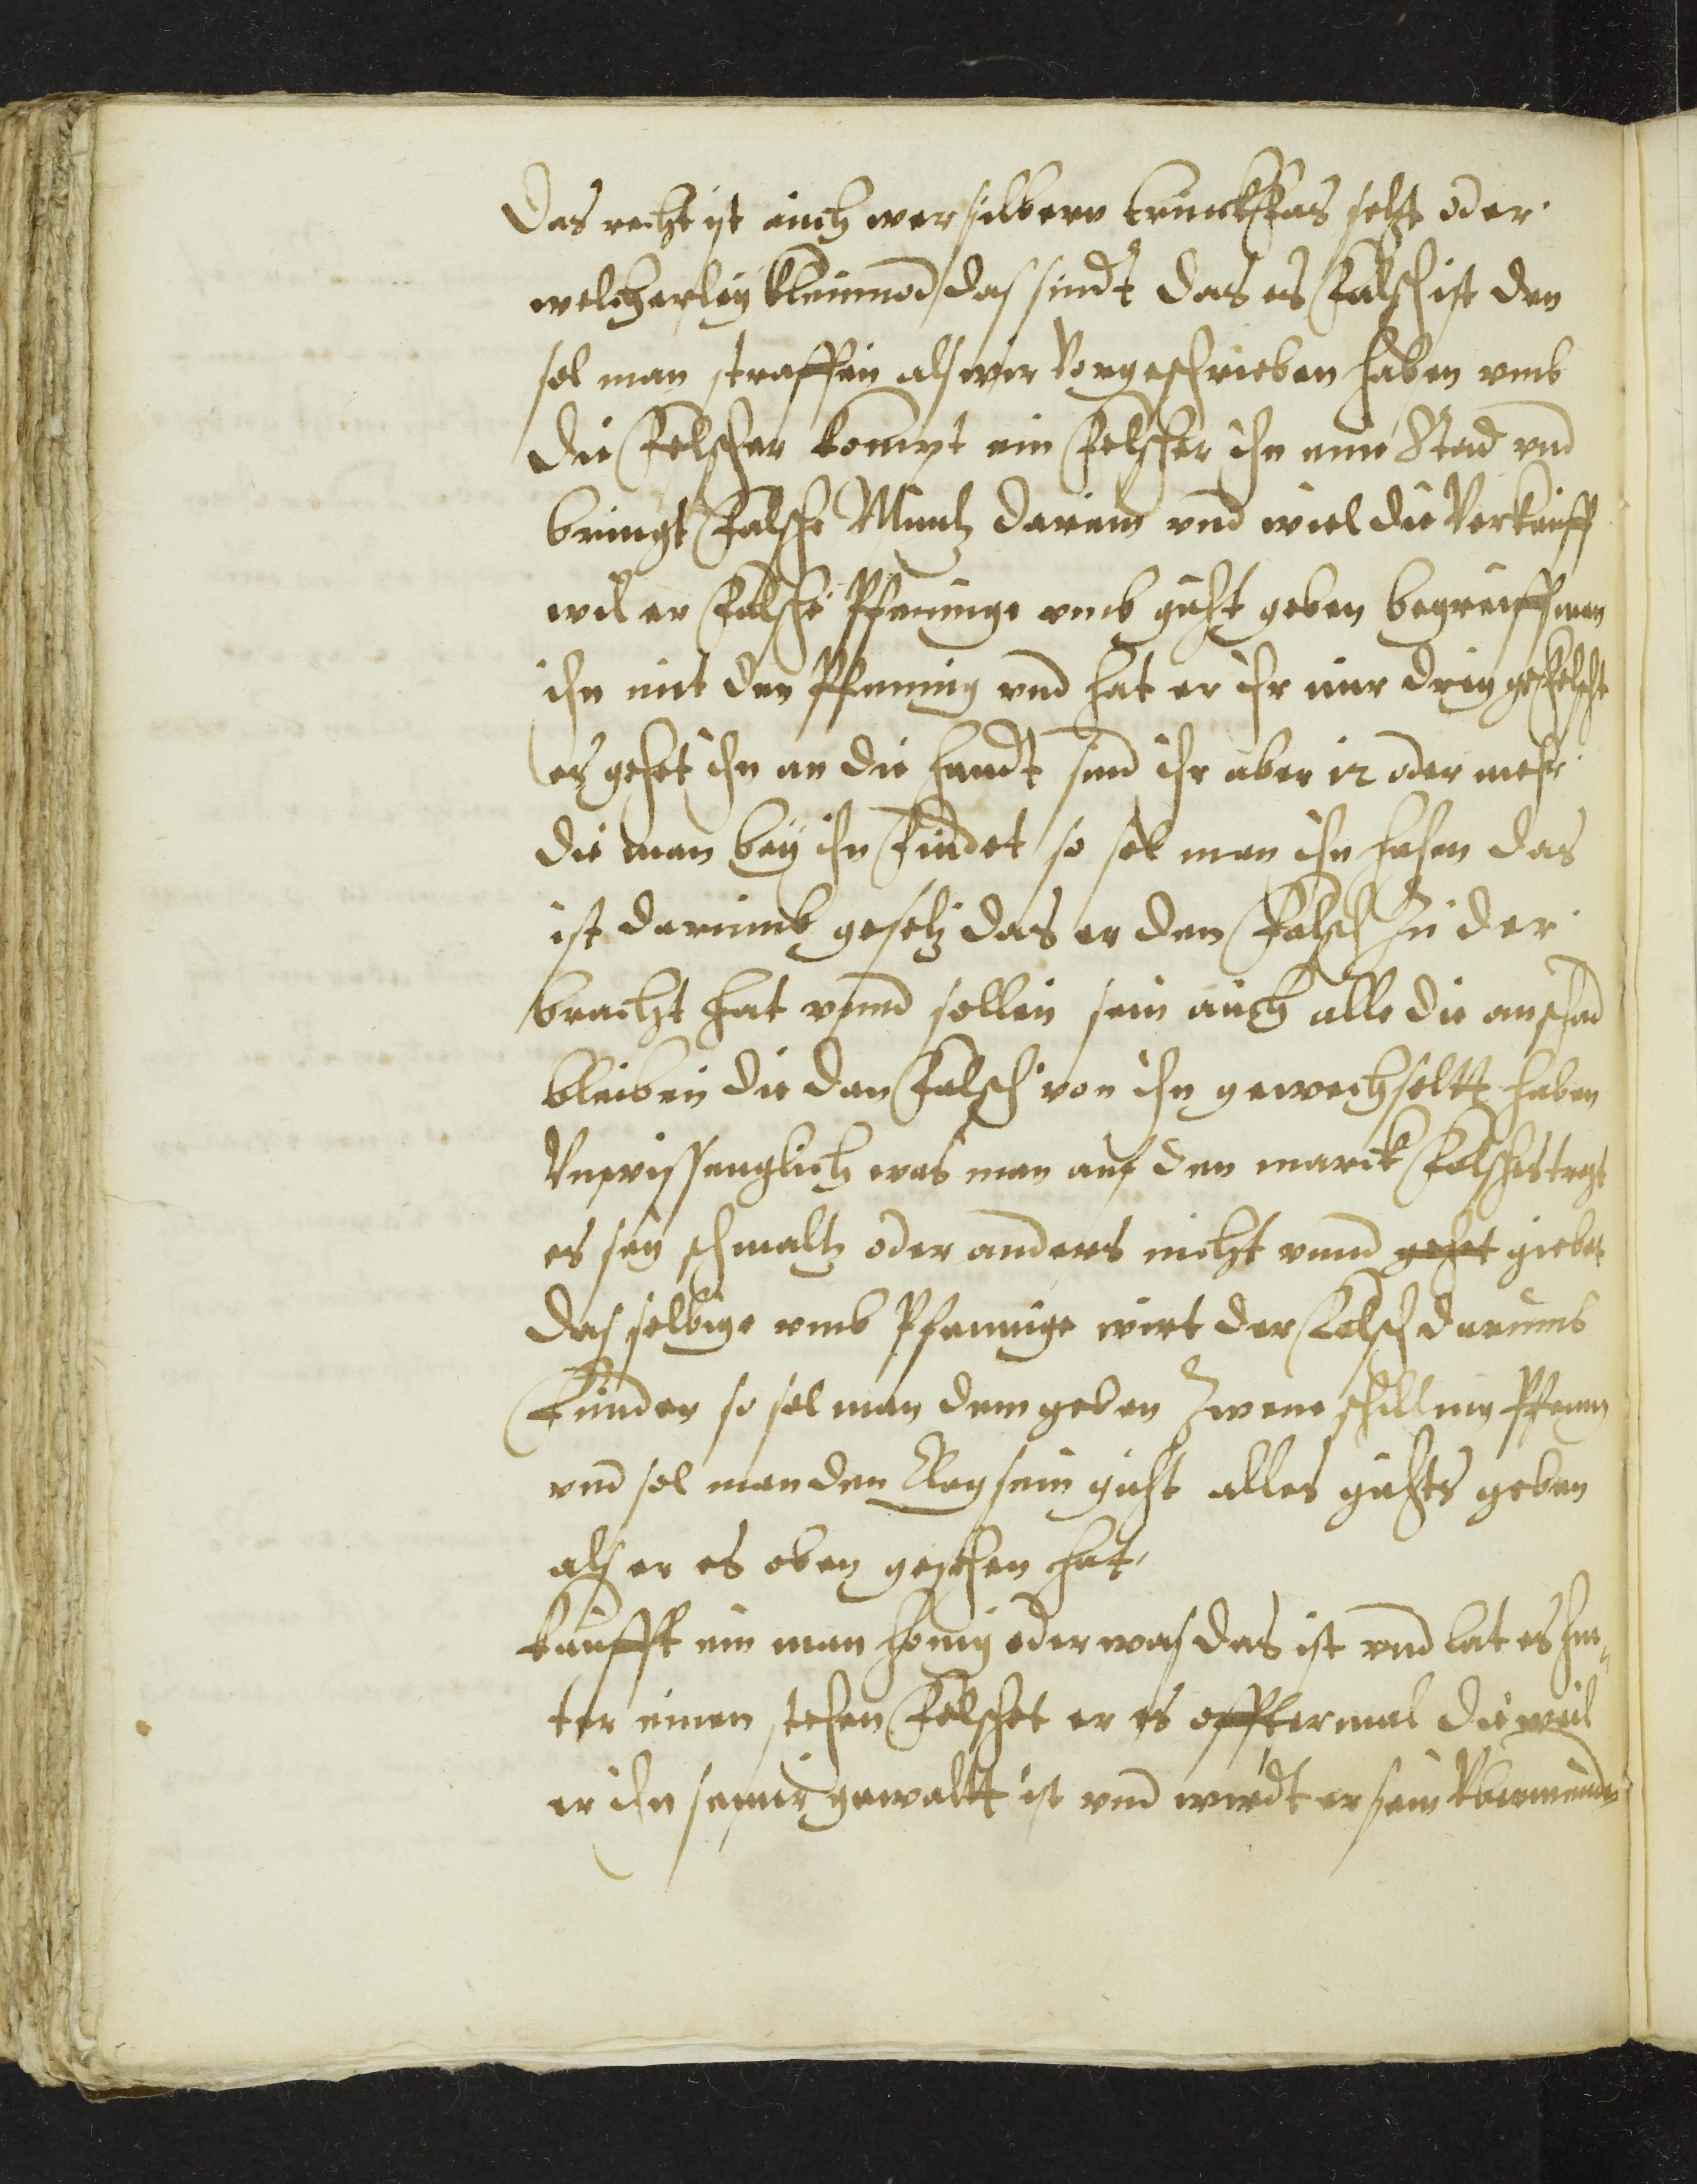 Das recht ist auch wer silbern trinckfas felst oder
welcherley kleinnod das sindt das es falsch ist den
sol man straffen als wir Vorgeschrieben haben vmb
die felscher kompt ein felscher ihn eine Stad vnd
bringt falsche Müntz darein vnd wiel die Verkauff
wil er falsche Pfeninge vmb guht geben begreifft man
ihn mit den Pfenning vnd hat er ihr nur drey gefelscht
es gehet ihn an die handt sind ihr aber 12 oder mehr
die man bey ihn findet so sol man ihn hehen das
ist darumb gesetz das er den falsch zu der
bracht hat vnnd sollen sein auch alle die anschad
bleiben die den falsch von ihn gewechseltt haben
Vnwissenglich was man auf den marck falsches tregt
es sey schmaltz oder anders nicht vnnd geht giebet
das selbige vmb Pfennige wirt der falsch darumb
funden so sol man dem geben zwene schilling Pfenng
vnd sol man den sein guht alles guhts geben
als er es oben gesehen hat.
kaufft ein man honig oder was das ist vnd lat es hin„
ter einen stehen felschet er es offtermal die weil
er ihn seiner gewaltt ist vnd wirdt er sein